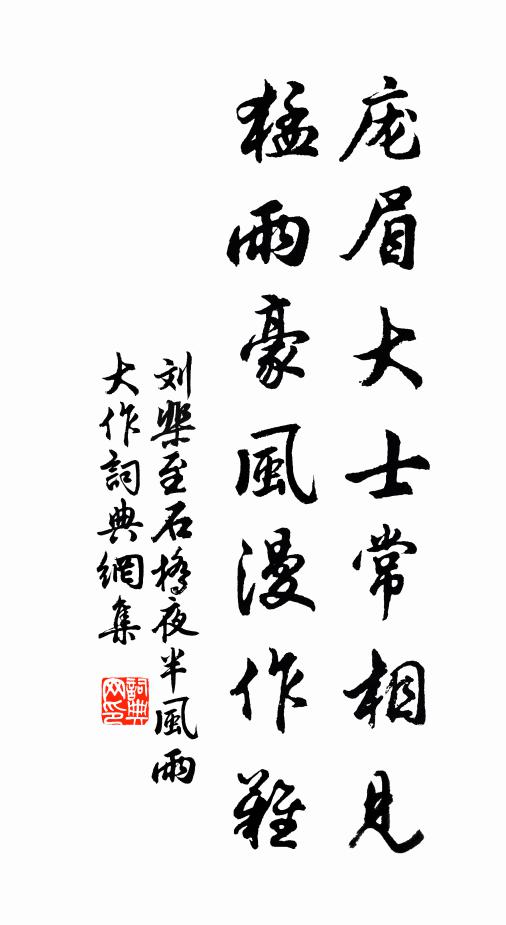 庞眉大士常相見
猛雨豪風漫作難
刘槩至石橋夜半風雨
大作詞典網集
詞典
网印